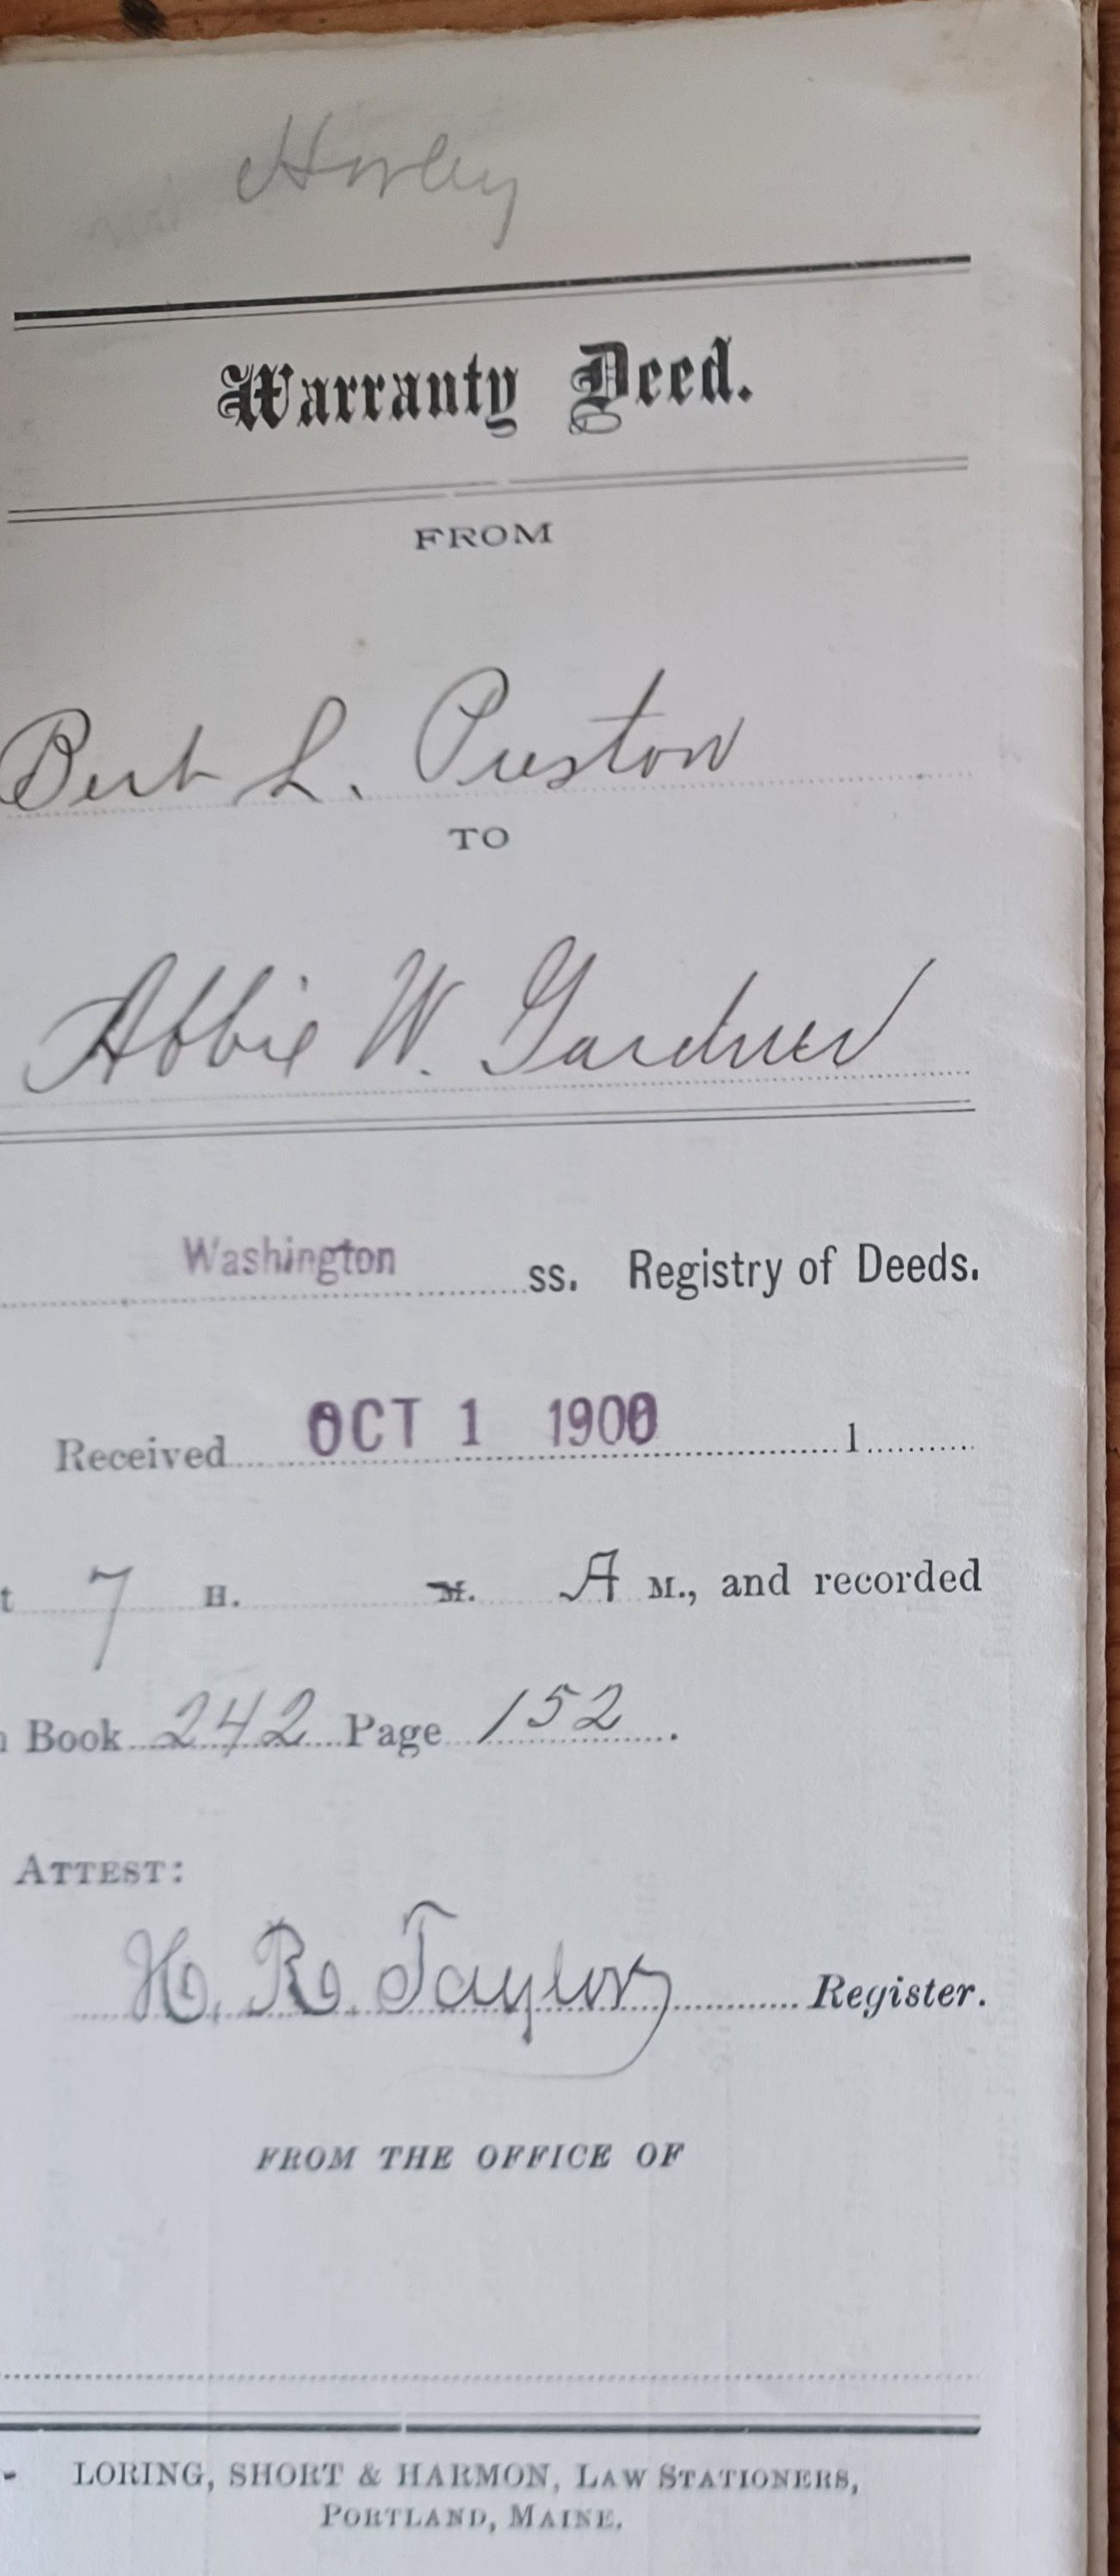 Warranty Deed.
FROM
Bert L. Preston
TO
Abbie W. Gardner
Washington ss. Registry of Deeds.
Received OCT 1 1900 1
t 7 H. M. A M., and recorded
n Book 242 Page 152.
ATTEST:
H. R. Taylor Register.
FROM THE OFFICE OF
LORING, SHORT & HARMON, LAW STATIONERS,
PORTLAND, MAINE.